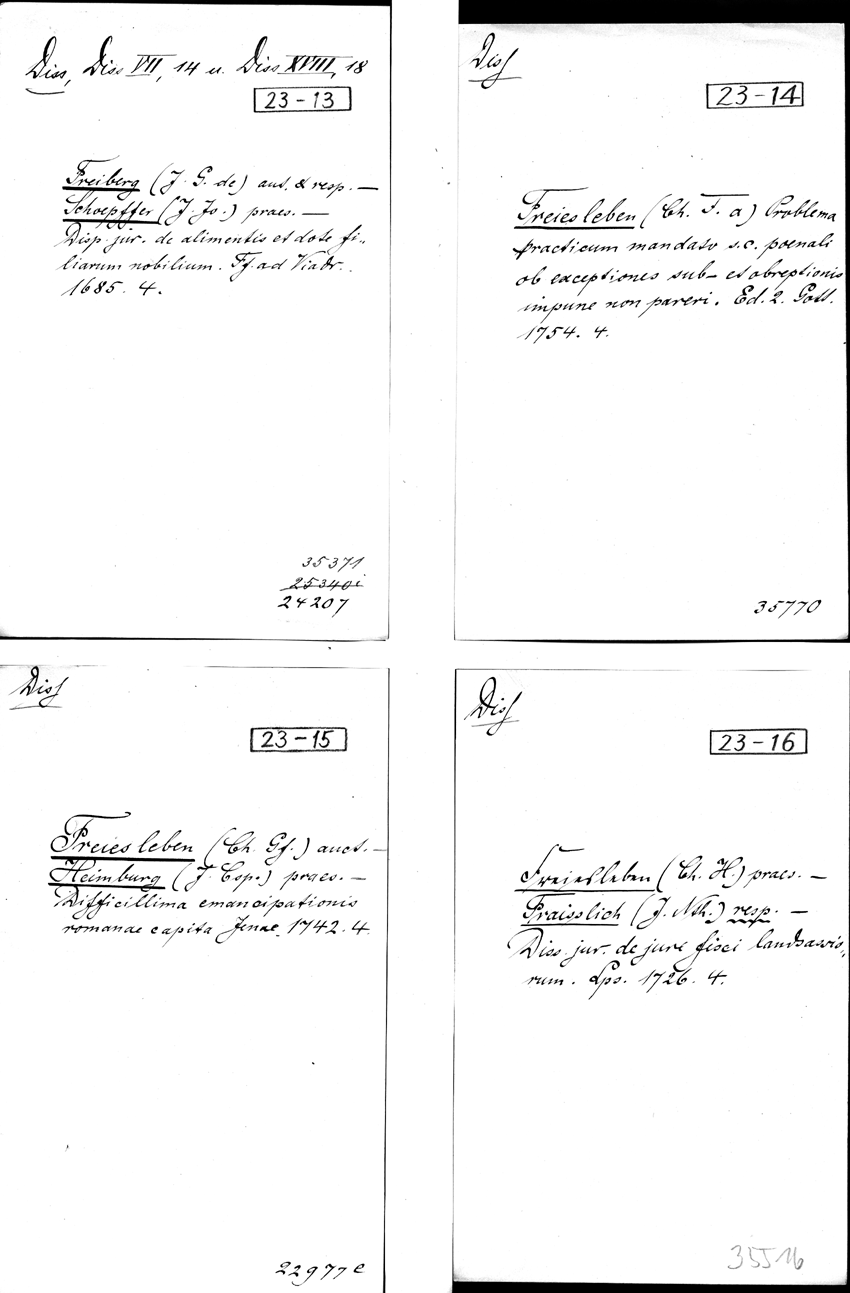 Diss, Diss VII, 14 u. Diss XVIII, 18
23-13
Freiberg (J. G. de) aut. & resp. —
Schoepffer (J. Jo.) praes. —
Disp. jur. de alimentis et dote fi-
liarum nobilium. Ff. ad Viadr.
1685. 4.
35371
25340i
24207
Diss
23-14
Freiesleben (Ch. F. a) Problema
practicum mandato s.c. poenali
ob exceptiones sub- et obreptionis
impune non pareri. Ed. 2. Gott.
1754. 4.
35770
Diss
23-15
Freiesleben (Ch. Gf.) auct. —
Heimburg (J. Csp.) praes. —
Difficillima emancipationis
romanae capita Jenae 1742. 4.
22977e
Diss
23-16
Freiesleben (Ch. H.) praes. —
Fraisslich (J. Nth.) resp. —
Diss. jur. de jure fisci landsassio-
rum. Lps. 1726. 4.
35516